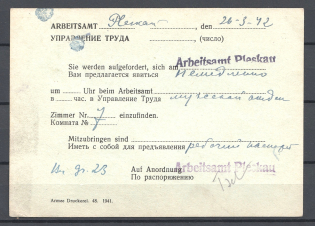 ARBEITSAMT Pleskau, den 26-3-42
УПРАВЛЕНИЕ ТРУДА (число)
Sie werden aufgefordert, sich am Arbeitsamt Pleskau
Вам предлагается явиться немедленно
um Uhr beim Arbeitsamt
в час. в Управление Труда мужской отдел
Zimmer Nr. 7 einzufinden.
Комната № 7
Mitzubringen sind
Иметь с собой для предъявления рабочий паспорт
Auf Anordnung: Arbeitsamt Pleskau
По распоряжению
Armee Druckerei. 48. 1941.